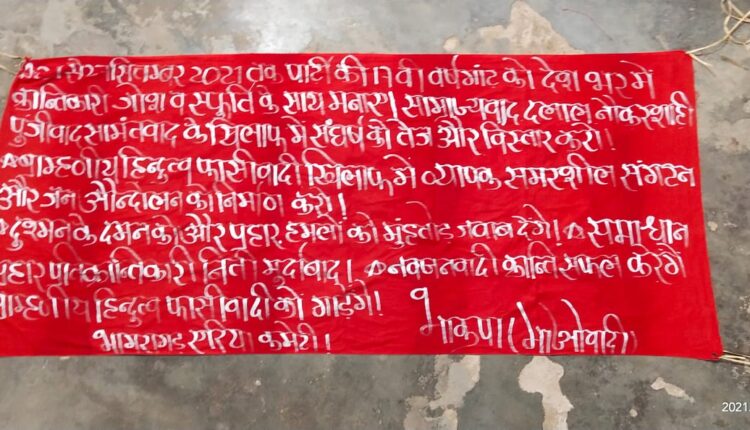 सितम्बर 2021 तक पार्टी की 17 वीं वर्षगांट को देश भर में
क्रान्तिकारी जोश व स्फूर्ति के साथ मनाएं। साम्राज्यवाद दलाल नोकरशाही
पुजीवाद सामंतवाद के खिलाफ में संघर्ष को तेज और विस्तार करो।
ब्राम्हणीय हिन्दुत्व फासीवादी खिलाफ में व्यापक समरशील संगटन
और जन औन्दोलन का निर्माण करो।
दुश्मन के दमन को और प्रहार हमलों को मुंहतोड़ जवाब देंगे। समाधान
प्रहार प्रतिक्रान्तिकारी निती मुर्दाबाद। नवजनवादी क्रान्ति सफल करेंगे
ब्राम्हणीय हिन्दुत्व फासीवादी को गाड़ेंगे।
भामरागड़ एरिया कमेटी।
भाकपा (माओवादी)
2021